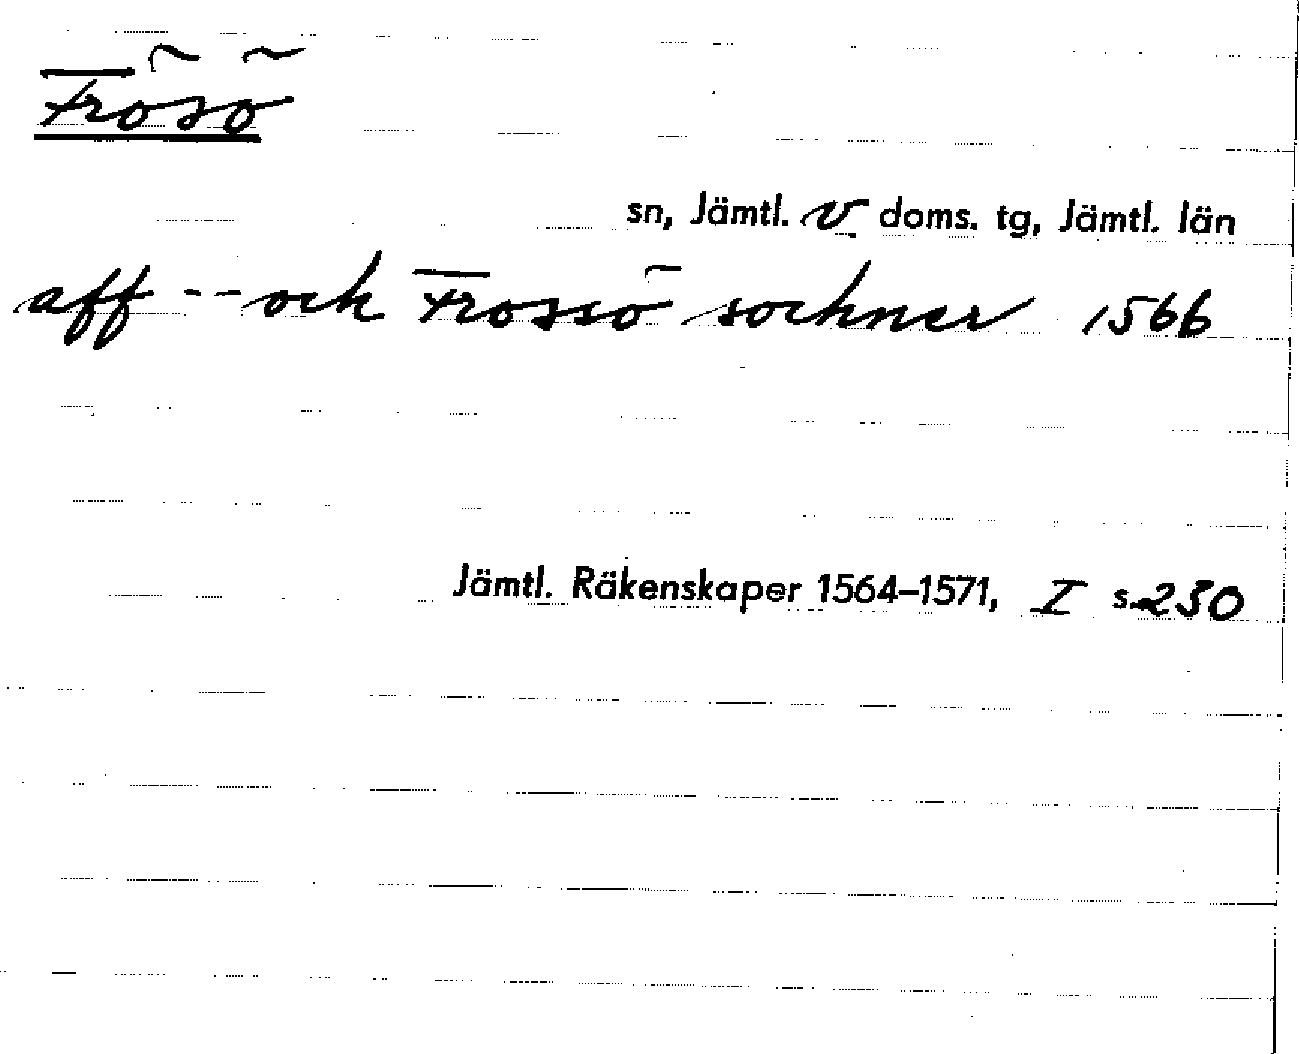 Frösö
sn, Jämtl. v doms. tg, Jämtl. län
aff -- och Frossö sochner 1566
Jämtl. Räkenskaper 1564–1571, I s. 230